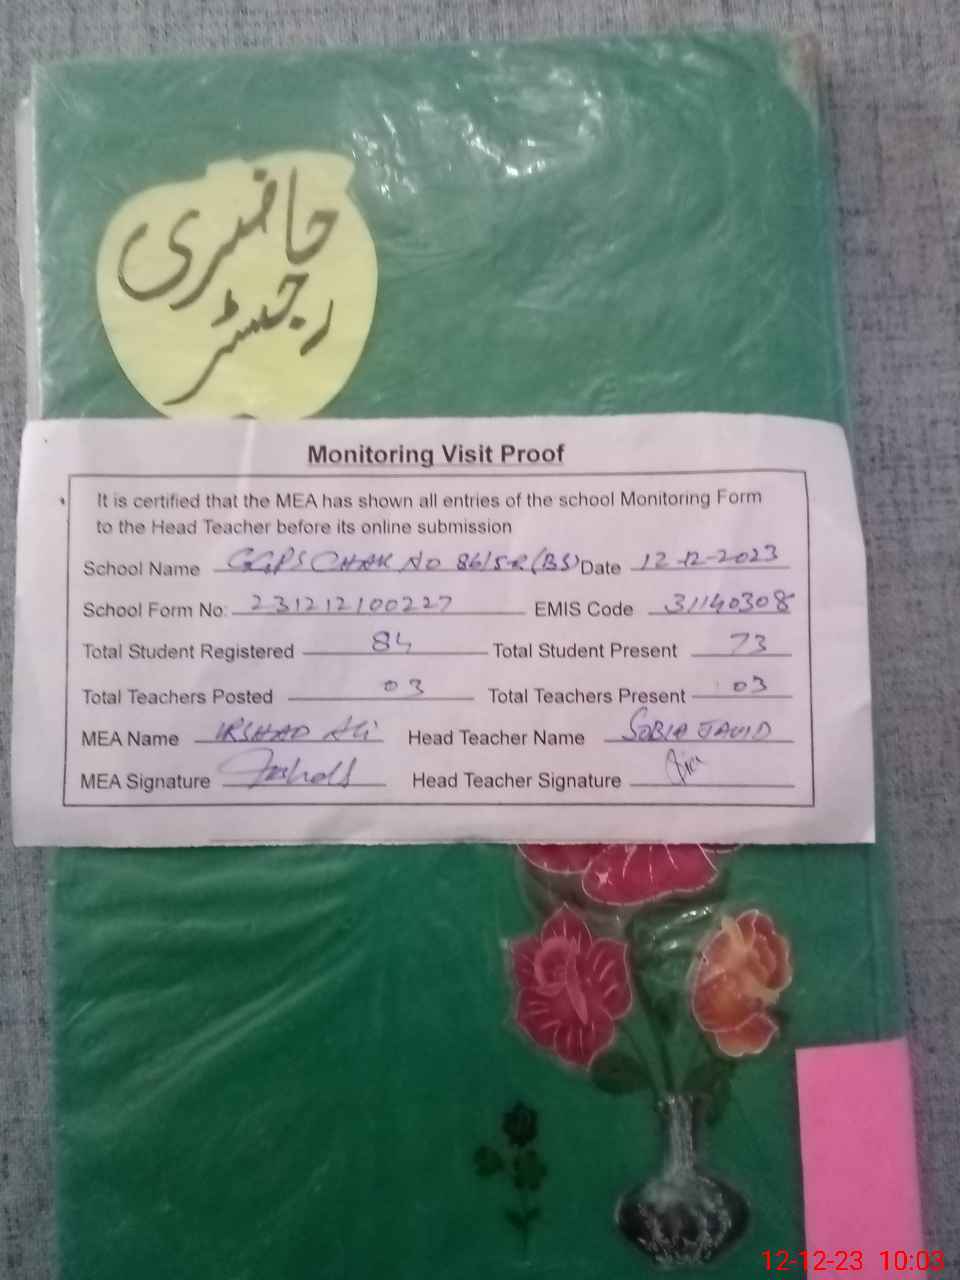 حاضری
رجسٹر
Monitoring Visit Proof
It is certified that the MEA has shown all entries of the school Monitoring Form
to the Head Teacher before its online submission
School Name GGPS CHAK NO 86/5-R (BS) Date 12-12-2023
School Form No: 231212100227 EMIS Code 31140308
Total Student Registered 84 Total Student Present 73
Total Teachers Posted 03 Total Teachers Present 03
MEA Name IRSHAD Ali Head Teacher Name SOBIA JAVID
MEA Signature Head Teacher Signature
12-12-23 10:03